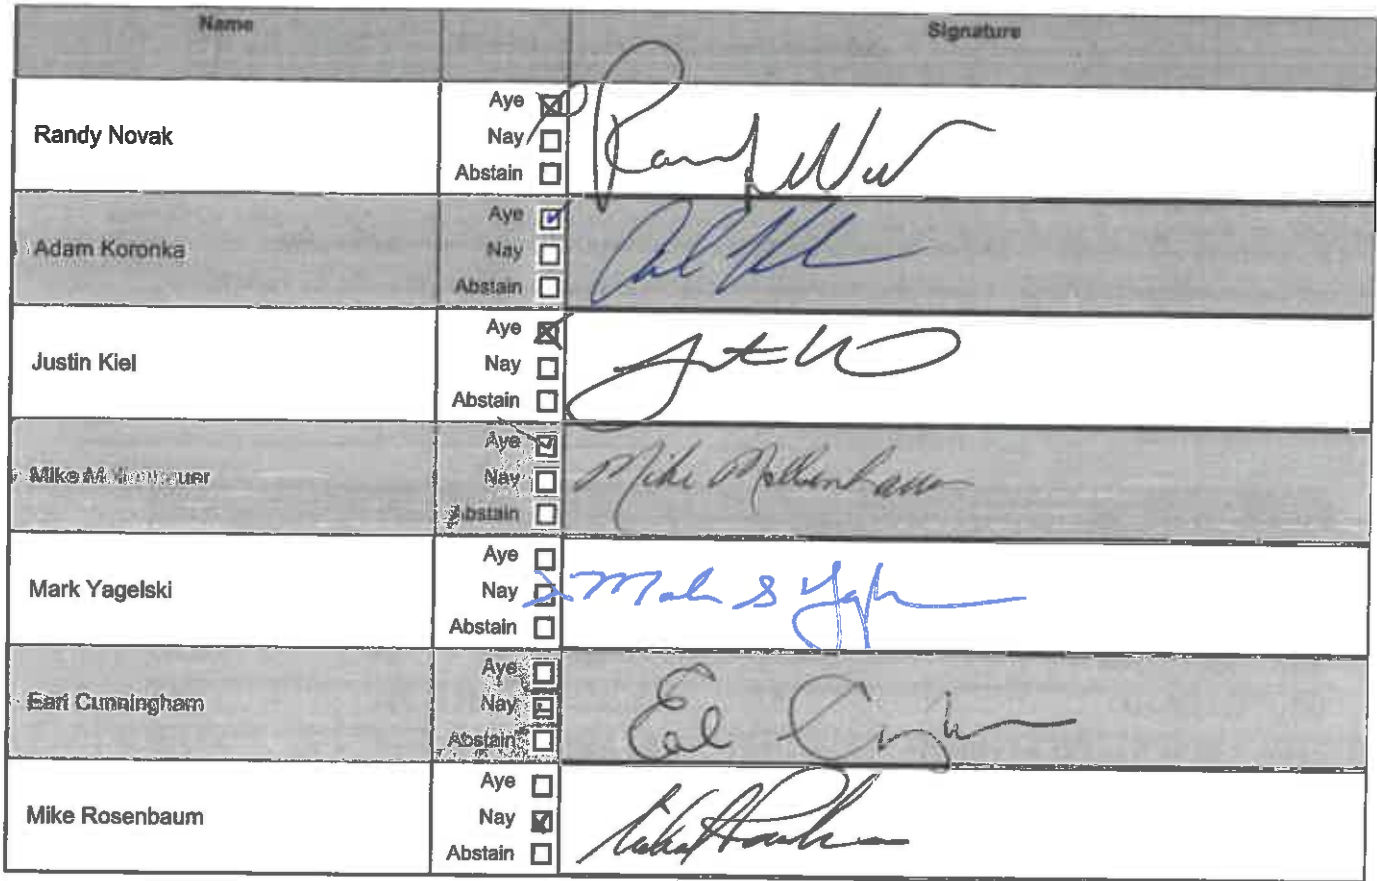 Name Signature
Randy Novak
Aye ☒
Nay ☐
Abstain ☐
Adam Koronka
Aye ☑
Nay ☐
Abstain ☐
Justin Kiel
Aye ☒
Nay ☐
Abstain ☐
Mike
Aye ☑
Nay ☐
Abstain ☐
Mike Mollenhauer
Mark Yagelski
Aye ☐
Nay ☒
Abstain ☐
Mark S Yagelski
Earl Cunningham
Aye ☐
Nay ☒
Abstain ☐
Mike Rosenbaum
Aye ☐
Nay ☑
Abstain ☐